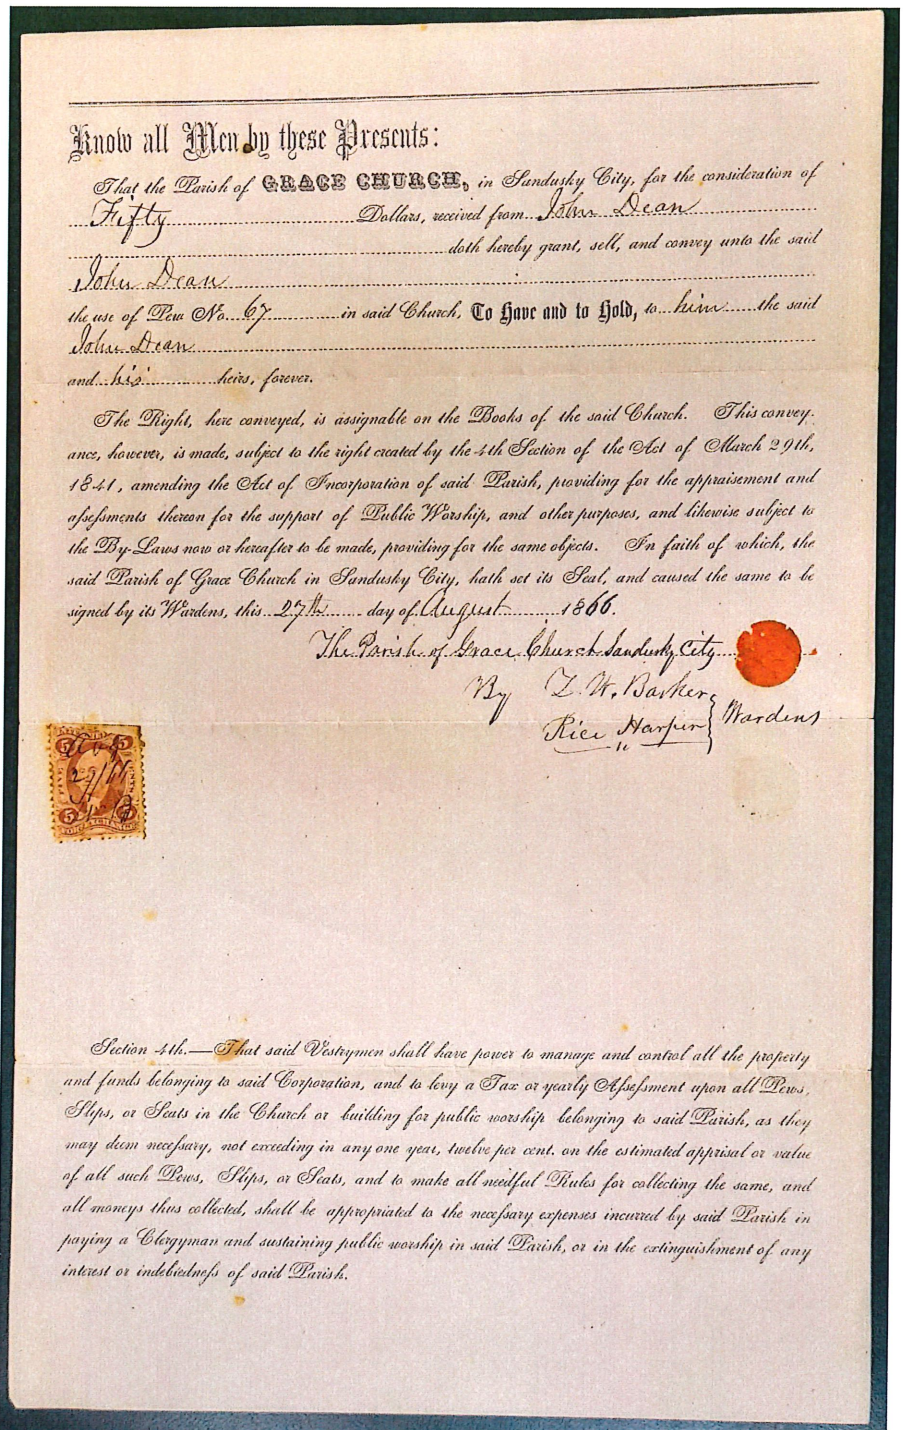 Know all Men by these Presents:
That the Parish of GRACE CHURCH, in Sandusky City, for the consideration of
Fifty Dollars, received from John Dean
doth hereby grant, sell, and convey unto the said
John Dean
the use of Pew No. 67 in said Church, To Have and to Hold, to him the said
John Dean
and his heirs, forever.
The Right, here conveyed, is assignable on the Books of the said Church. This convey-
ance, however, is made, subject to the right created by the 4th Section of the Act of March 29th,
1841, amending the Act of Incorporation of said Parish, providing for the appraisement and
assessments thereon for the support of Public Worship, and other purposes, and likewise subject to
the By-Laws now or hereafter to be made, providing for the same objects. In faith of which, the
said Parish of Grace Church in Sandusky City, hath set its Seal, and caused the same to be
signed by its Wardens, this 27th day of August 1866.
The Parish of Grace Church Sandusky City
By Z. W. Barker
Rice Harper } Wardens
5 5
FIVE CENTS
5 5
Section 4th.—That said Vestrymen shall have power to manage and control all the property
and funds belonging to said Corporation, and to levy a Tax or yearly Assessment upon all Pews,
Slips, or Seats in the Church or building for public worship belonging to said Parish, as they
may deem necessary, not exceeding in any one year, twelve per cent. on the estimated apprisal or value
of all such Pews, Slips, or Seats, and to make all needful Rules for collecting the same, and
all moneys thus collected, shall be appropriated to the necessary expenses incurred by said Parish in
paying a Clergyman and sustaining public worship in said Parish, or in the extinguishment of any
interest or indebtedness of said Parish.